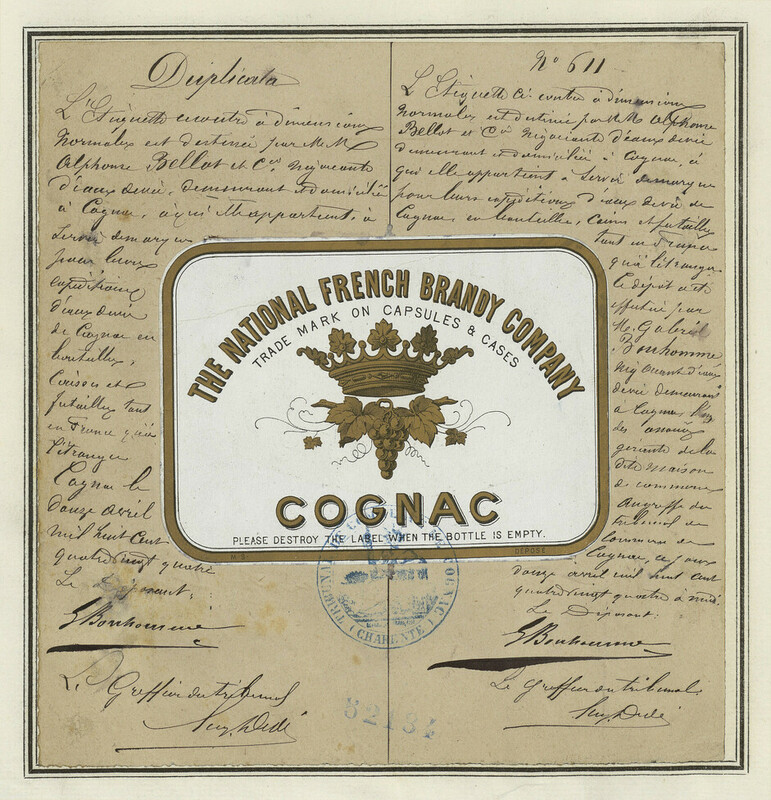 Duplicata
L'Etiquette ci contre à dimensions
Normales est destinée par M.M.
Alphonse Bellot et Cie Négociants
d'eaux de vie, demeurant et domiciliés
à Cognac, à qui elle appartient, à
servir de marque
pour leurs
expéditions
d'eaux de vie
de Cognac en
bouteilles,
Caisses et
futailles tant
en France qu'à
l'étranger
Cognac le
douze avril
mil huit cent
quatre vingt quatre
Le Déposant:
G Bonhomme
Le Greffier du tribunal
No 611
L'Etiquette ci contre à dimensions
normales est destinée par M.M. Alphonse
Bellot et Cie Négociants d'eaux de vie
demeurant et domiciliés à Cognac, à
qui elle appartient à servir de marque
pour leurs expéditions d'eaux de vie de
Cognac en bouteilles, Caisses et futailles
tant en France
qu'à l'étranger
Le dépôt a été
effectué par
M. Gabriel
Bonhomme
Négociant d'eaux
de vie demeurant
à Cognac l'un
des associés
gérants de la
dite maison
de commerce
Au greffe du
tribunal de
Commerce de
Cognac, ce jour
douze avril mil huit cent
quatre vingt quatre à midi.
Le Déposant:
G Bonhomme
Le Greffier du tribunal
THE NATIONAL FRENCH BRANDY COMPANY
TRADE MARK ON CAPSULES & CASES
COGNAC
PLEASE DESTROY THE LABEL WHEN THE BOTTLE IS EMPTY.
DÉPOSÉ
TRIBUNAL DE COMMERCE DE COGNAC
(CHARENTE)
82484